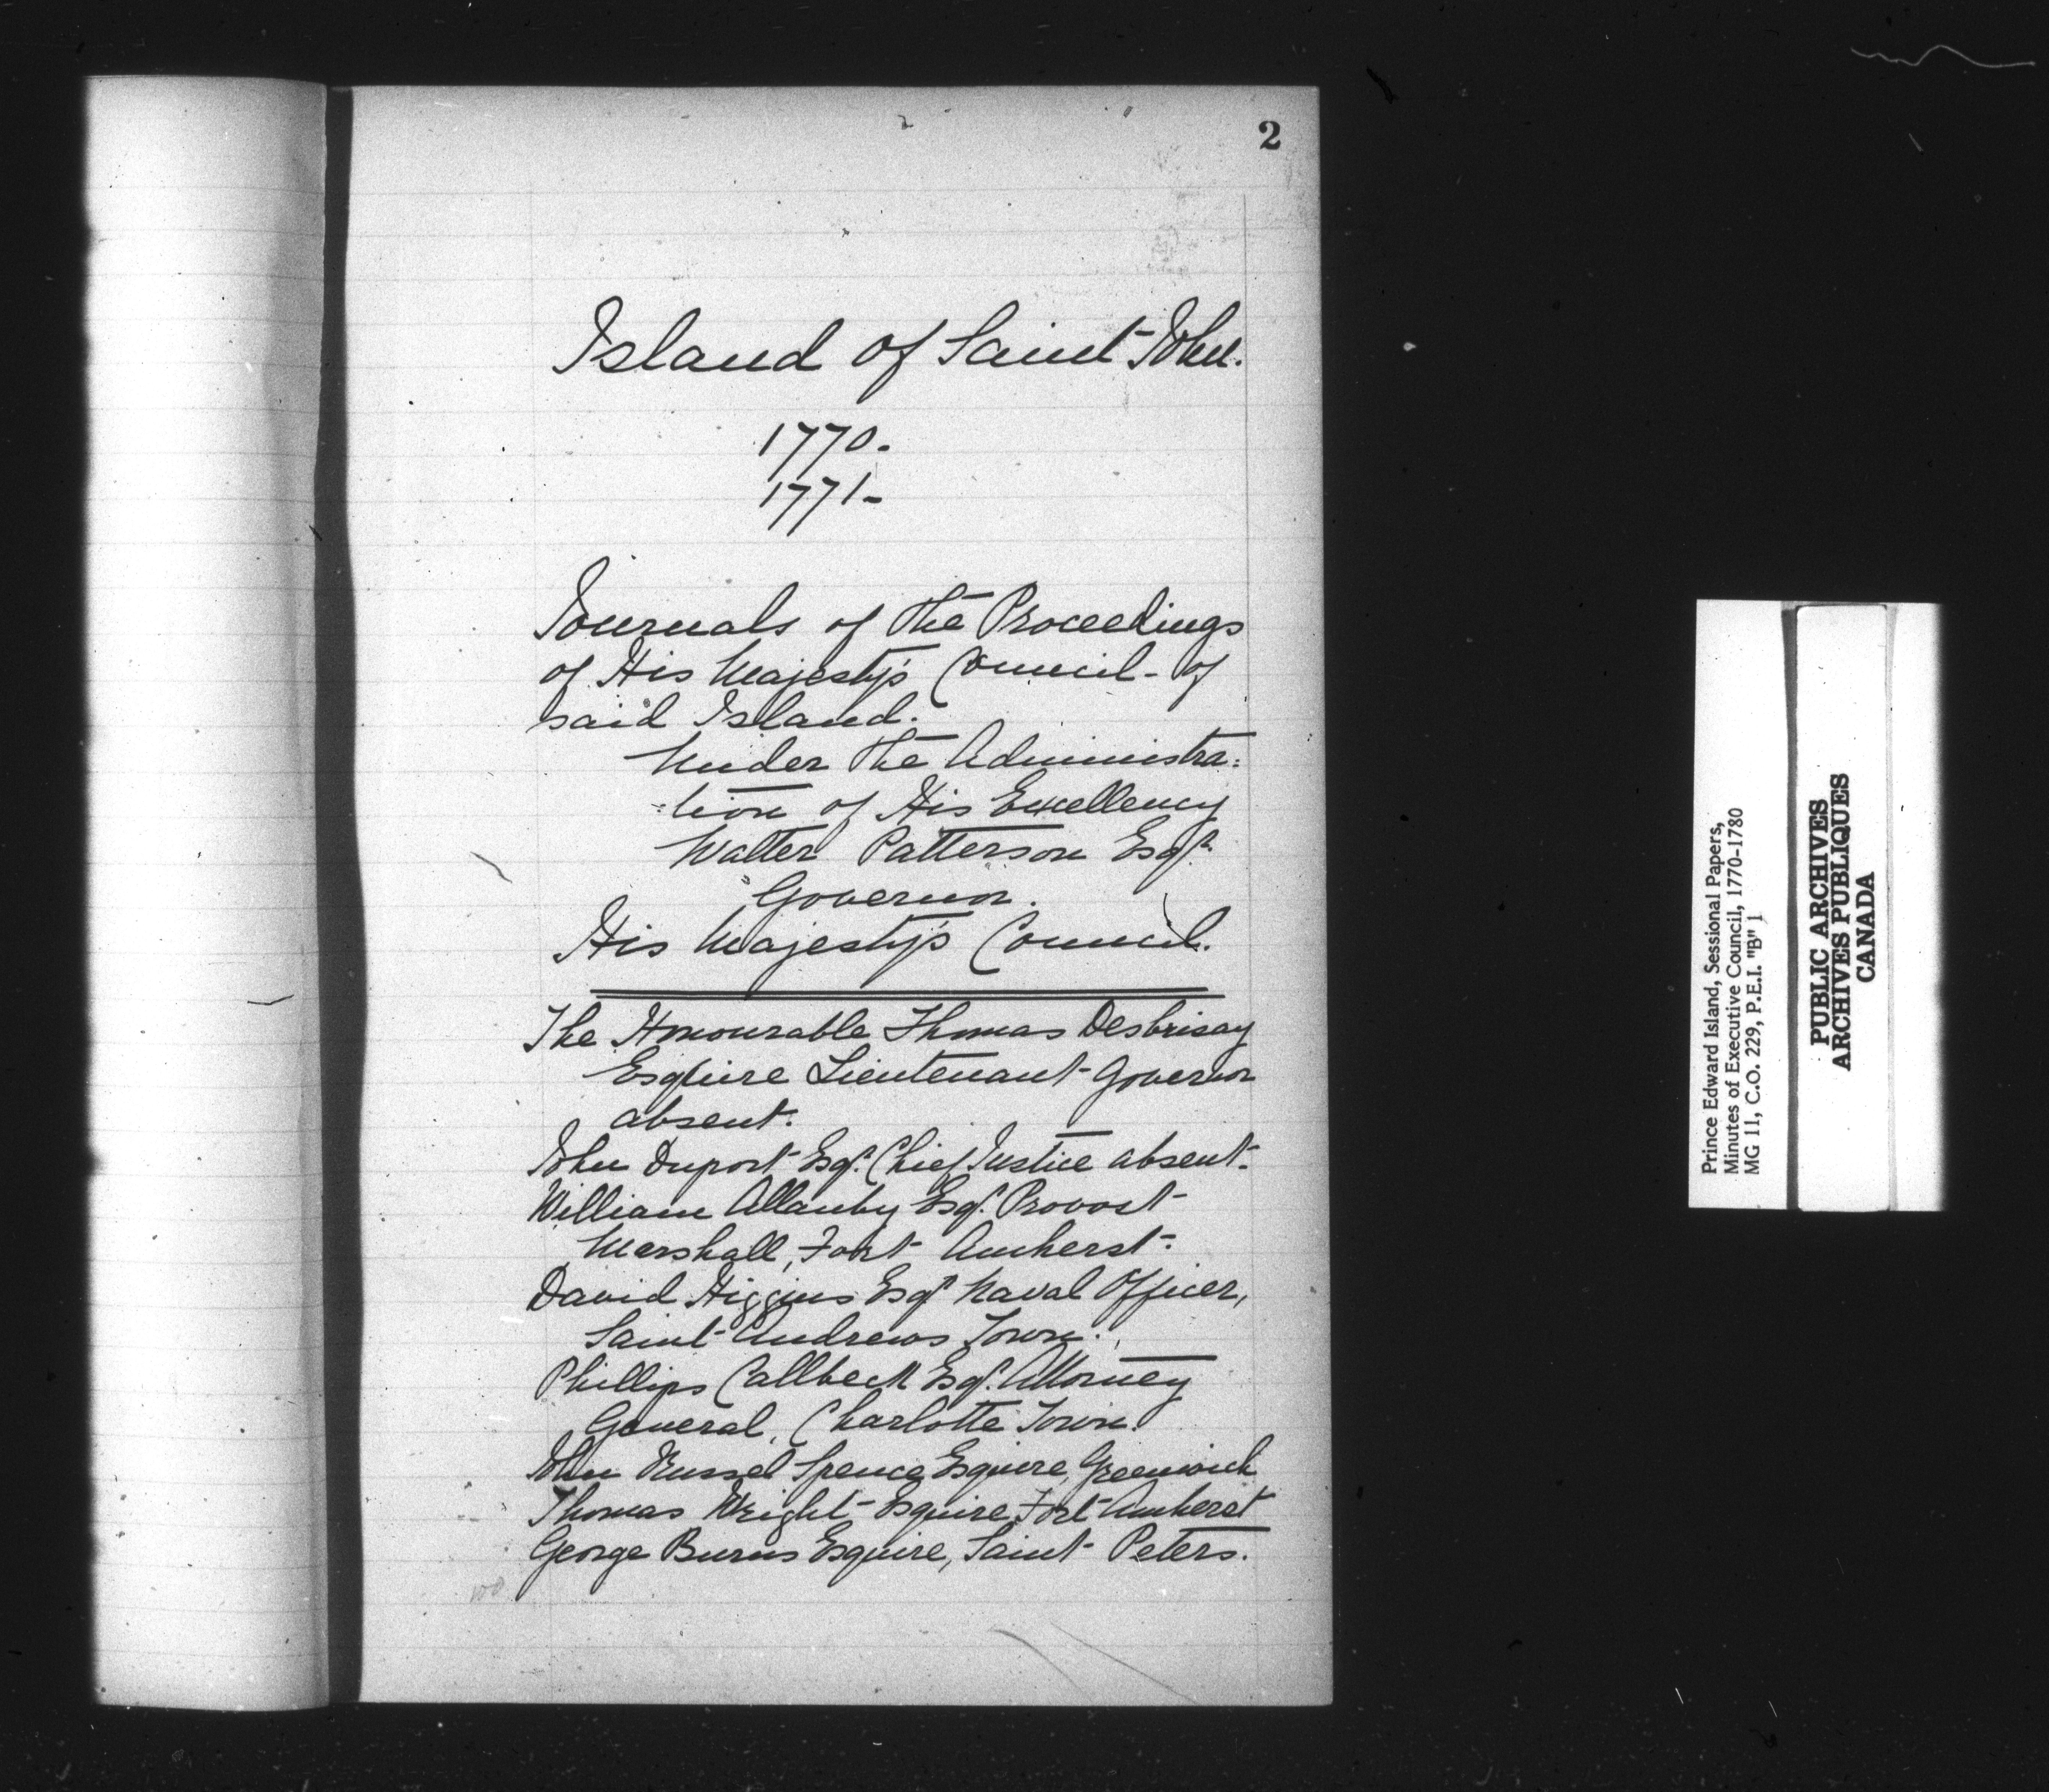 2
Island of Saint John.
1770.
1771-
Journals of the Proceedings
of His Majesty's Council of
said Island.
Under the Administra=
=tion of His Excellency
Walter Patterson Esqr.
Governor.
His Majesty's Council.
The Honourable Thomas Desbrisay
Esquire Lieutenant Governor
absent.
John Duport Esqr. Chief Justice absent.
William Allanby Esqr. Provost
Marshall, Fort Amherst.
David Higgins Esqr Naval Officer,
Saint Andrews Town.
Phillips Callbeck Esqr. Attorney
General, Charlotte Town.
John Russel Spence Esquire, Greenwich
Thomas Wright Esquire, Fort Amherst
George Burns Esquire, Saint Peters.
Prince Edward Island, Sessional Papers,
Minutes of Executive Council, 1770-1780
MG 11, C.O. 229, P.E.I. "B" 1
PUBLIC ARCHIVES
ARCHIVES PUBLIQUES
CANADA